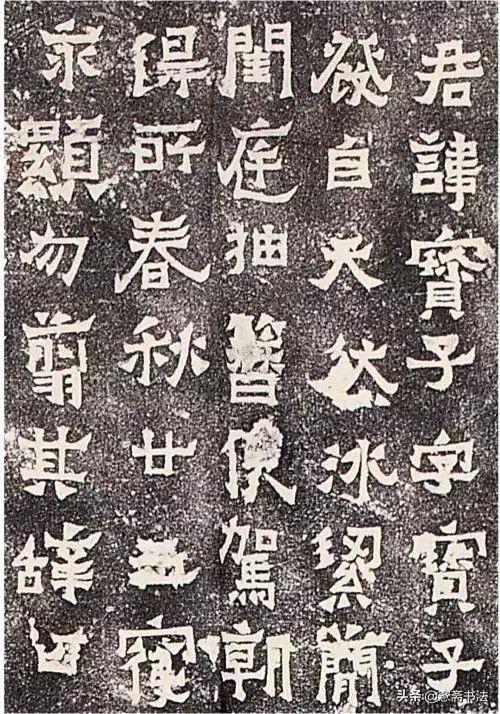 君諱寶子字寶子
發自天然冰絜簡
閨庭抽簪俟駕朝
得所春秋廿五寢
永顯勿翦其辭曰
头条 @斋书法